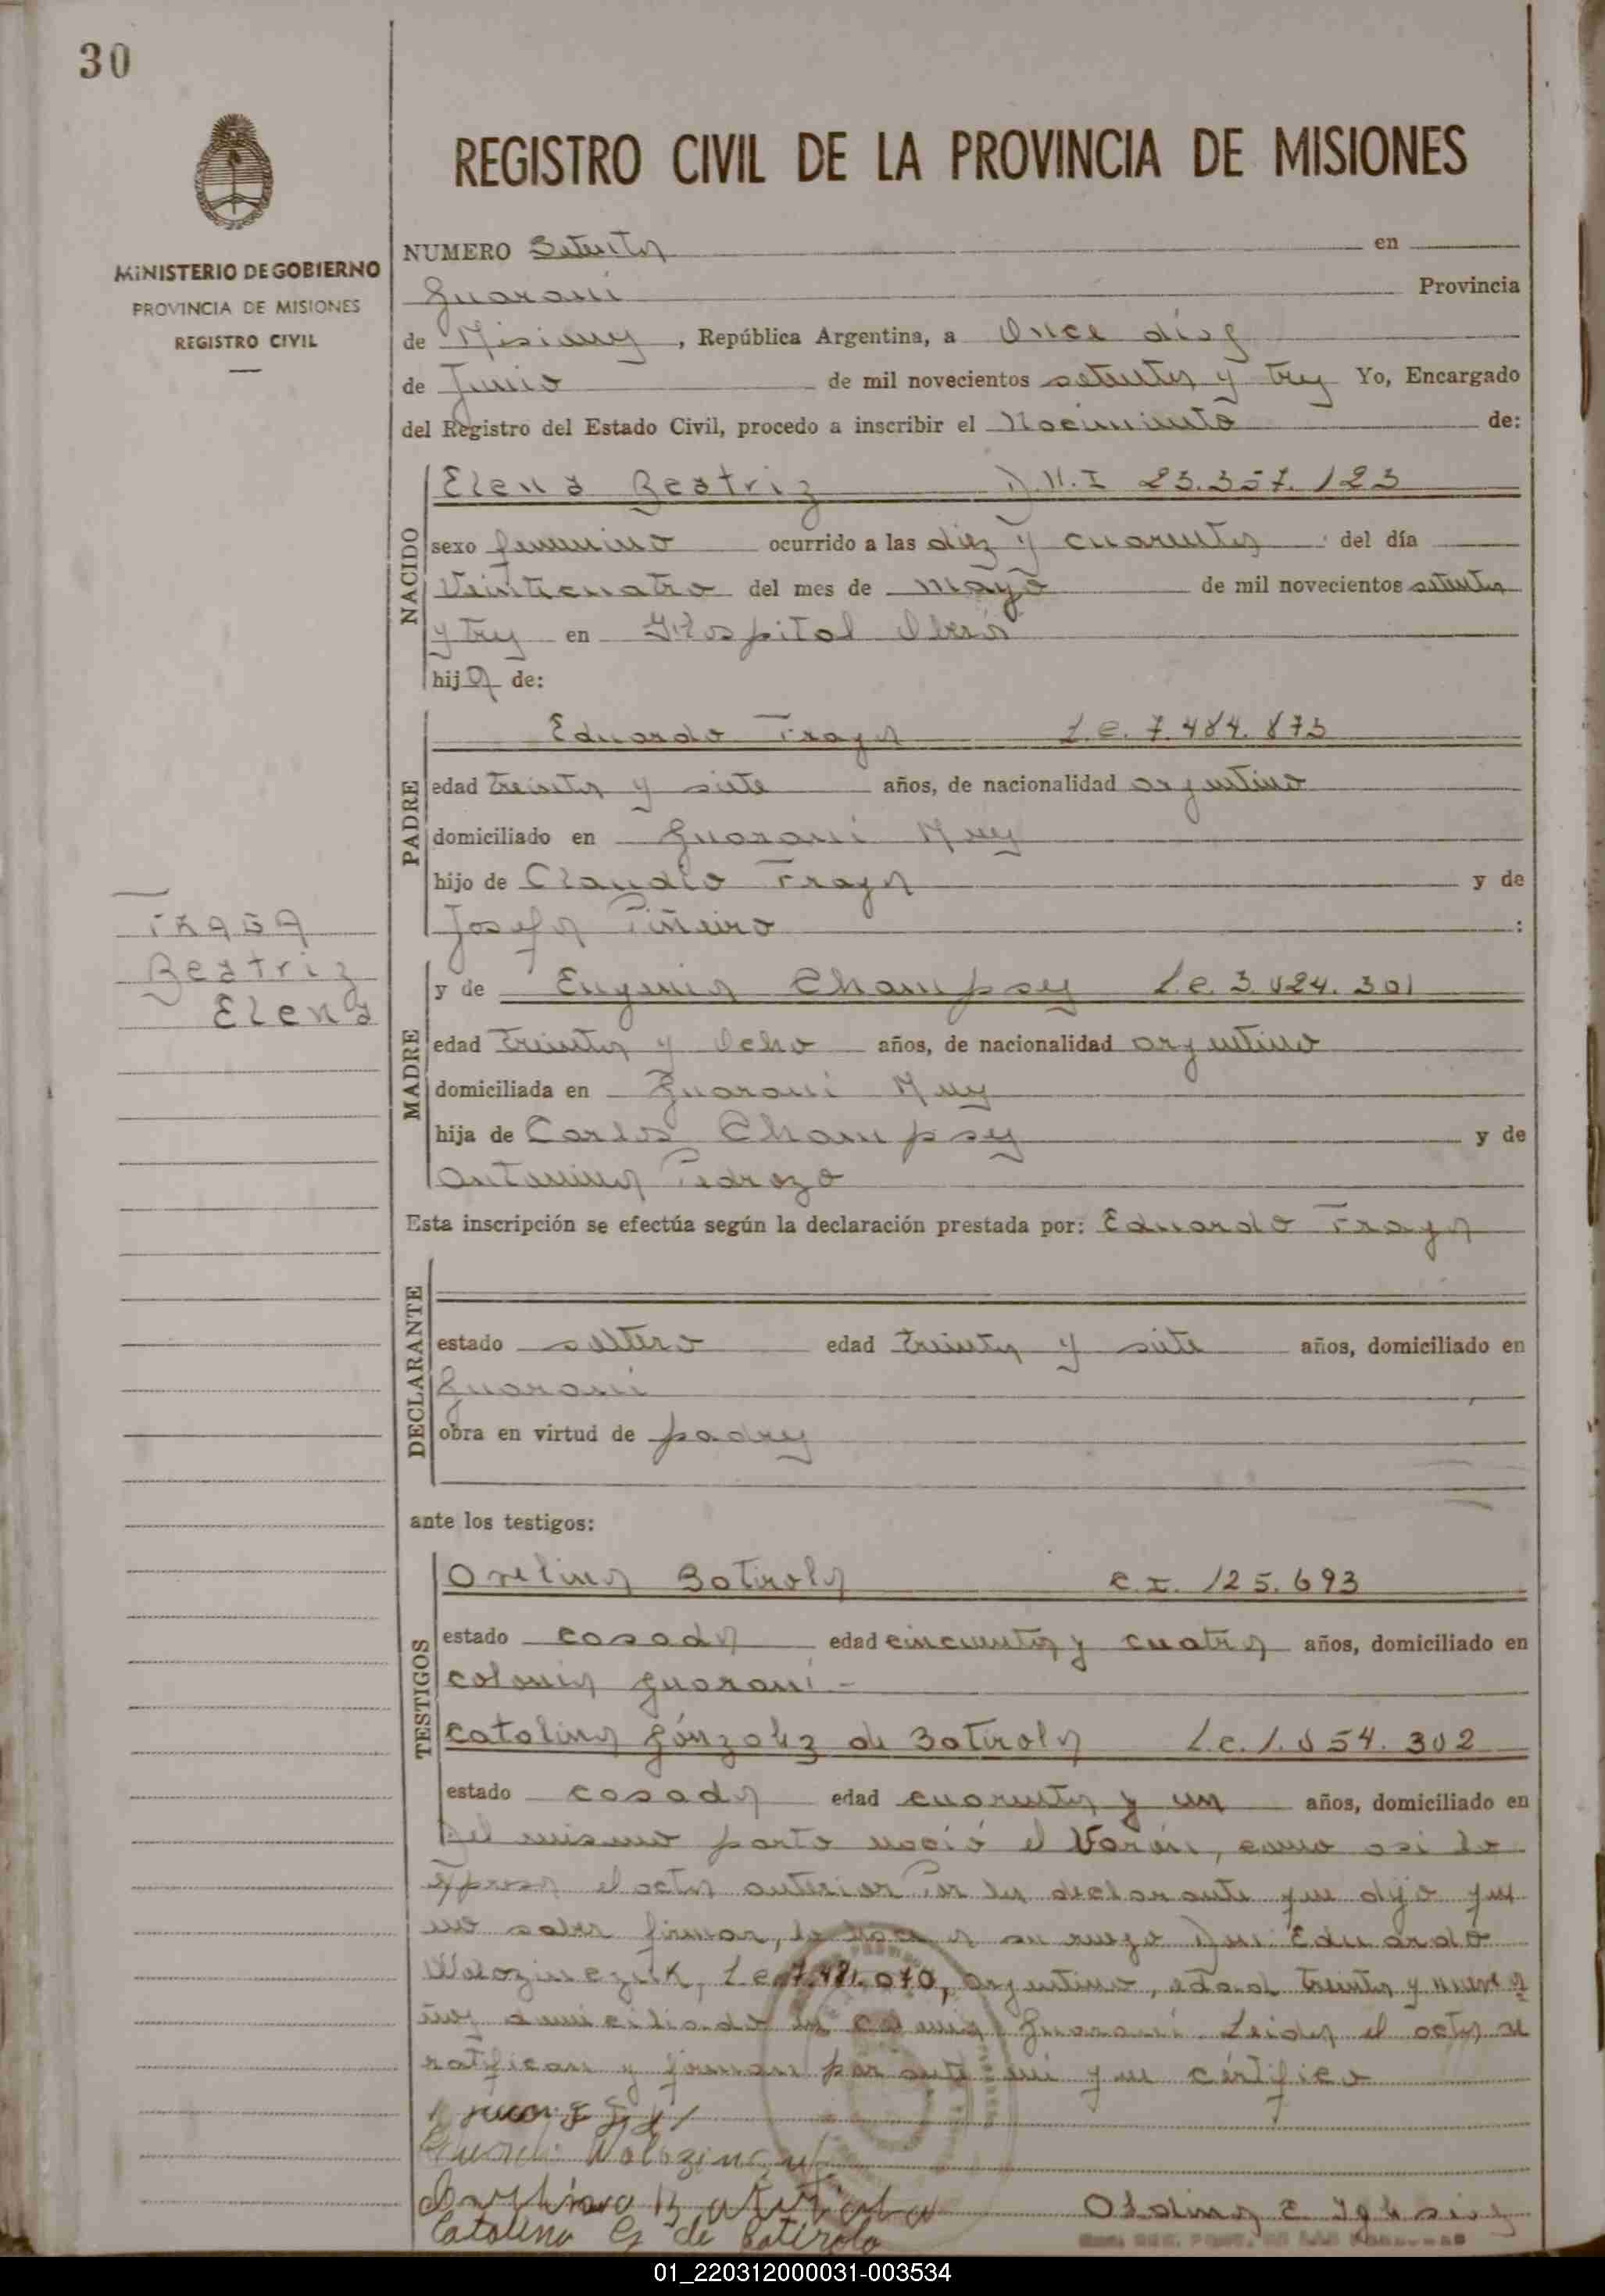 30
REGISTRO CIVIL DE LA PROVINCIA DE MISIONES
MINISTERIO DE GOBIERNO
PROVINCIA DE MISIONES
REGISTRO CIVIL
NUMERO Setenta en
Guarani Provincia
de Misiones, República Argentina, a Once dias
de Junio de mil novecientos setenta y tres Yo, Encargado
del Registro del Estado Civil, procedo a inscribir el Nacimiento de:
NACIDO
Elena Beatriz D.N.I 23.357.123
sexo femenino ocurrido a las diez y cuarenta del día
Veinticuatro del mes de mayo de mil novecientos setenta
y tres en Hospital Oberá
hija de:
PADRE
Eduardo Fraga L.E. 7.484.873
edad treinta y siete años, de nacionalidad argentino
domiciliado en Guarani Mnes
hijo de Claudio Fraga y de
Josefa Piñeiro :
FRAGA
Beatriz
Elena
MADRE
y de Eugenia Champsy L.C. 3.024.301
edad treinta y Ocho años, de nacionalidad argentina
domiciliada en Guarani Mnes
hija de Carlos Champsy y de
Antonina Pedrozo
Esta inscripción se efectúa según la declaración prestada por: Eduardo Fraga
DECLARANTE
estado soltero edad treinta y siete años, domiciliado en
Guarani
obra en virtud de padres
ante los testigos:
TESTIGOS
Orelina Batirola C.I. 125.693
estado casada edad cincuenta y cuatro años, domiciliado en
colonia guarani -
Catalina Gónzalez de Batirola L.C. 1.054.302
estado casada edad cuarenta y un años, domiciliado en
Del mismo parto nació el Varón, como asi lo
expresa el acta anterior Por la declarante que dijo que
no saber firmar, lo hace a su ruego Don Eduardo
Wolozinczuk, L.E. 7.481.070, argentino, edad treinta y nueve a
ños domiciliado en colonia Guarani. Leida el acta se
ratifican y firman por ante mi que certifico
Wolozinczuk
Catalina G de Batirola
01_220312000031-003534